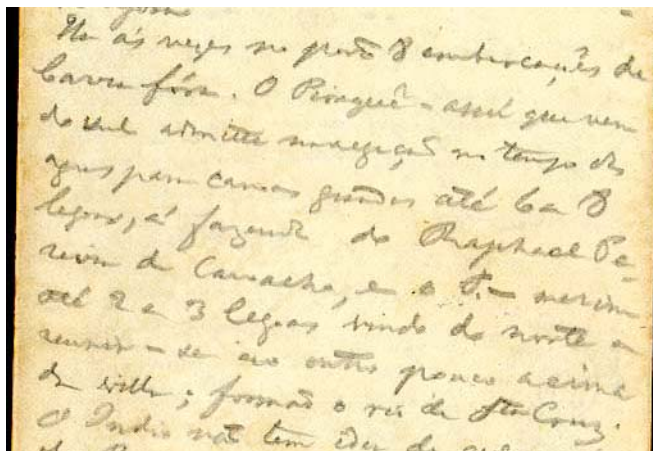 Ha ás vezes no porto 8 embarcações de
barra fóra. O Piraquê-assú que vem
do sul admitte navegação no tempo das
aguas para canoas grandes até 6 a 8
legoas, á fazenda do Raphael Pe-
reira de Carvalho, e o P.-merim
até 2 a 3 legoas vindo do norte a
reunir-se ao outro pouco acima
da villa; formão o rio de Sta Cruz.
O Indio não tem idea de